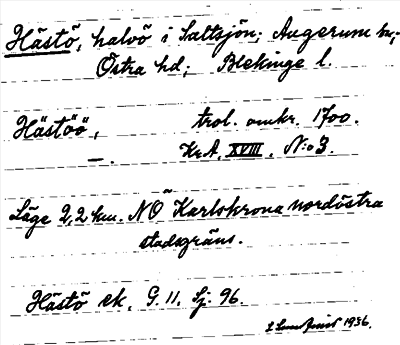 Hästö, halvö i Saltsjön; Augerum sn;
Östra hd; Blekinge l.
Hästöö, trol. omkr. 1700.
—. Kr.A. XVIII. N:o 3.
Läge 2,2 km. NÖ Karlskrona nordöstra
stadsgräns.
Hästö ek. G. 11, Sj. 96.
1936.